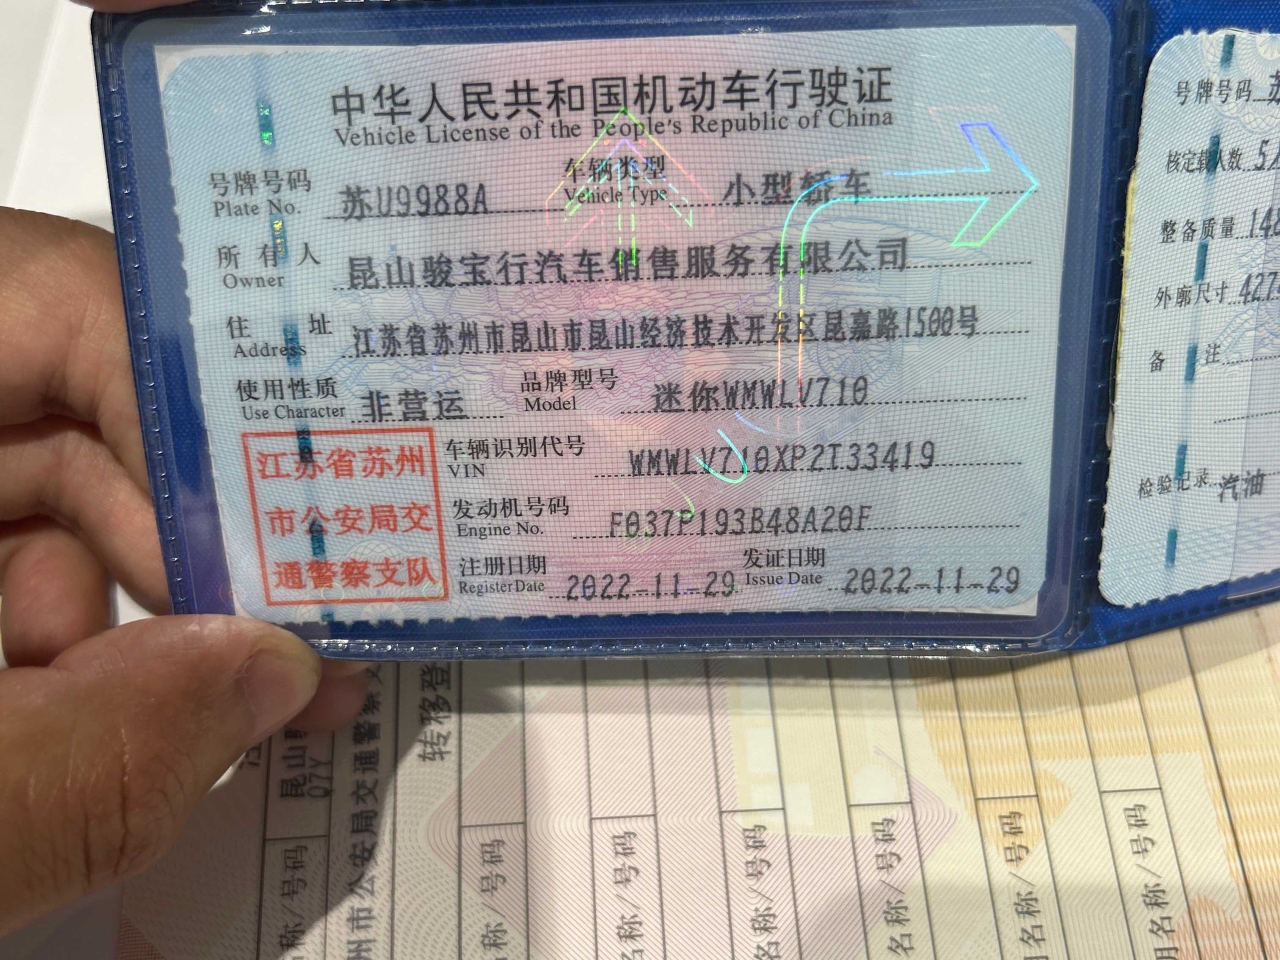 中华人民共和国机动车行驶证
Vehicle License of the People's Republic of China
号牌号码 苏U9988A 车辆类型 小型轿车
Plate No. Vehicle Type
所有人 昆山骏宝行汽车销售服务有限公司
Owner
住址 江苏省苏州市昆山市昆山经济技术开发区昆嘉路1500号
Address
使用性质 非营运 品牌型号 迷你WMWLV710
Use Character Model
江苏省苏州
市公安局交
通警察支队
车辆识别代号 WMWLV710XP2T33419
VIN
发动机号码 F037P193B48A20F
Engine No.
注册日期 2022-11-29 发证日期 2022-11-29
Register Date Issue Date
号牌号码 苏
核定载人数 5人
整备质量 14
外廓尺寸 427
备注
检验记录 汽油
转移登
昆山
07Y
州市公安局交通警察支
称/号码
名称/号码
名称/号码
名称/号码
名称/号码
名称/号码
名称/号码